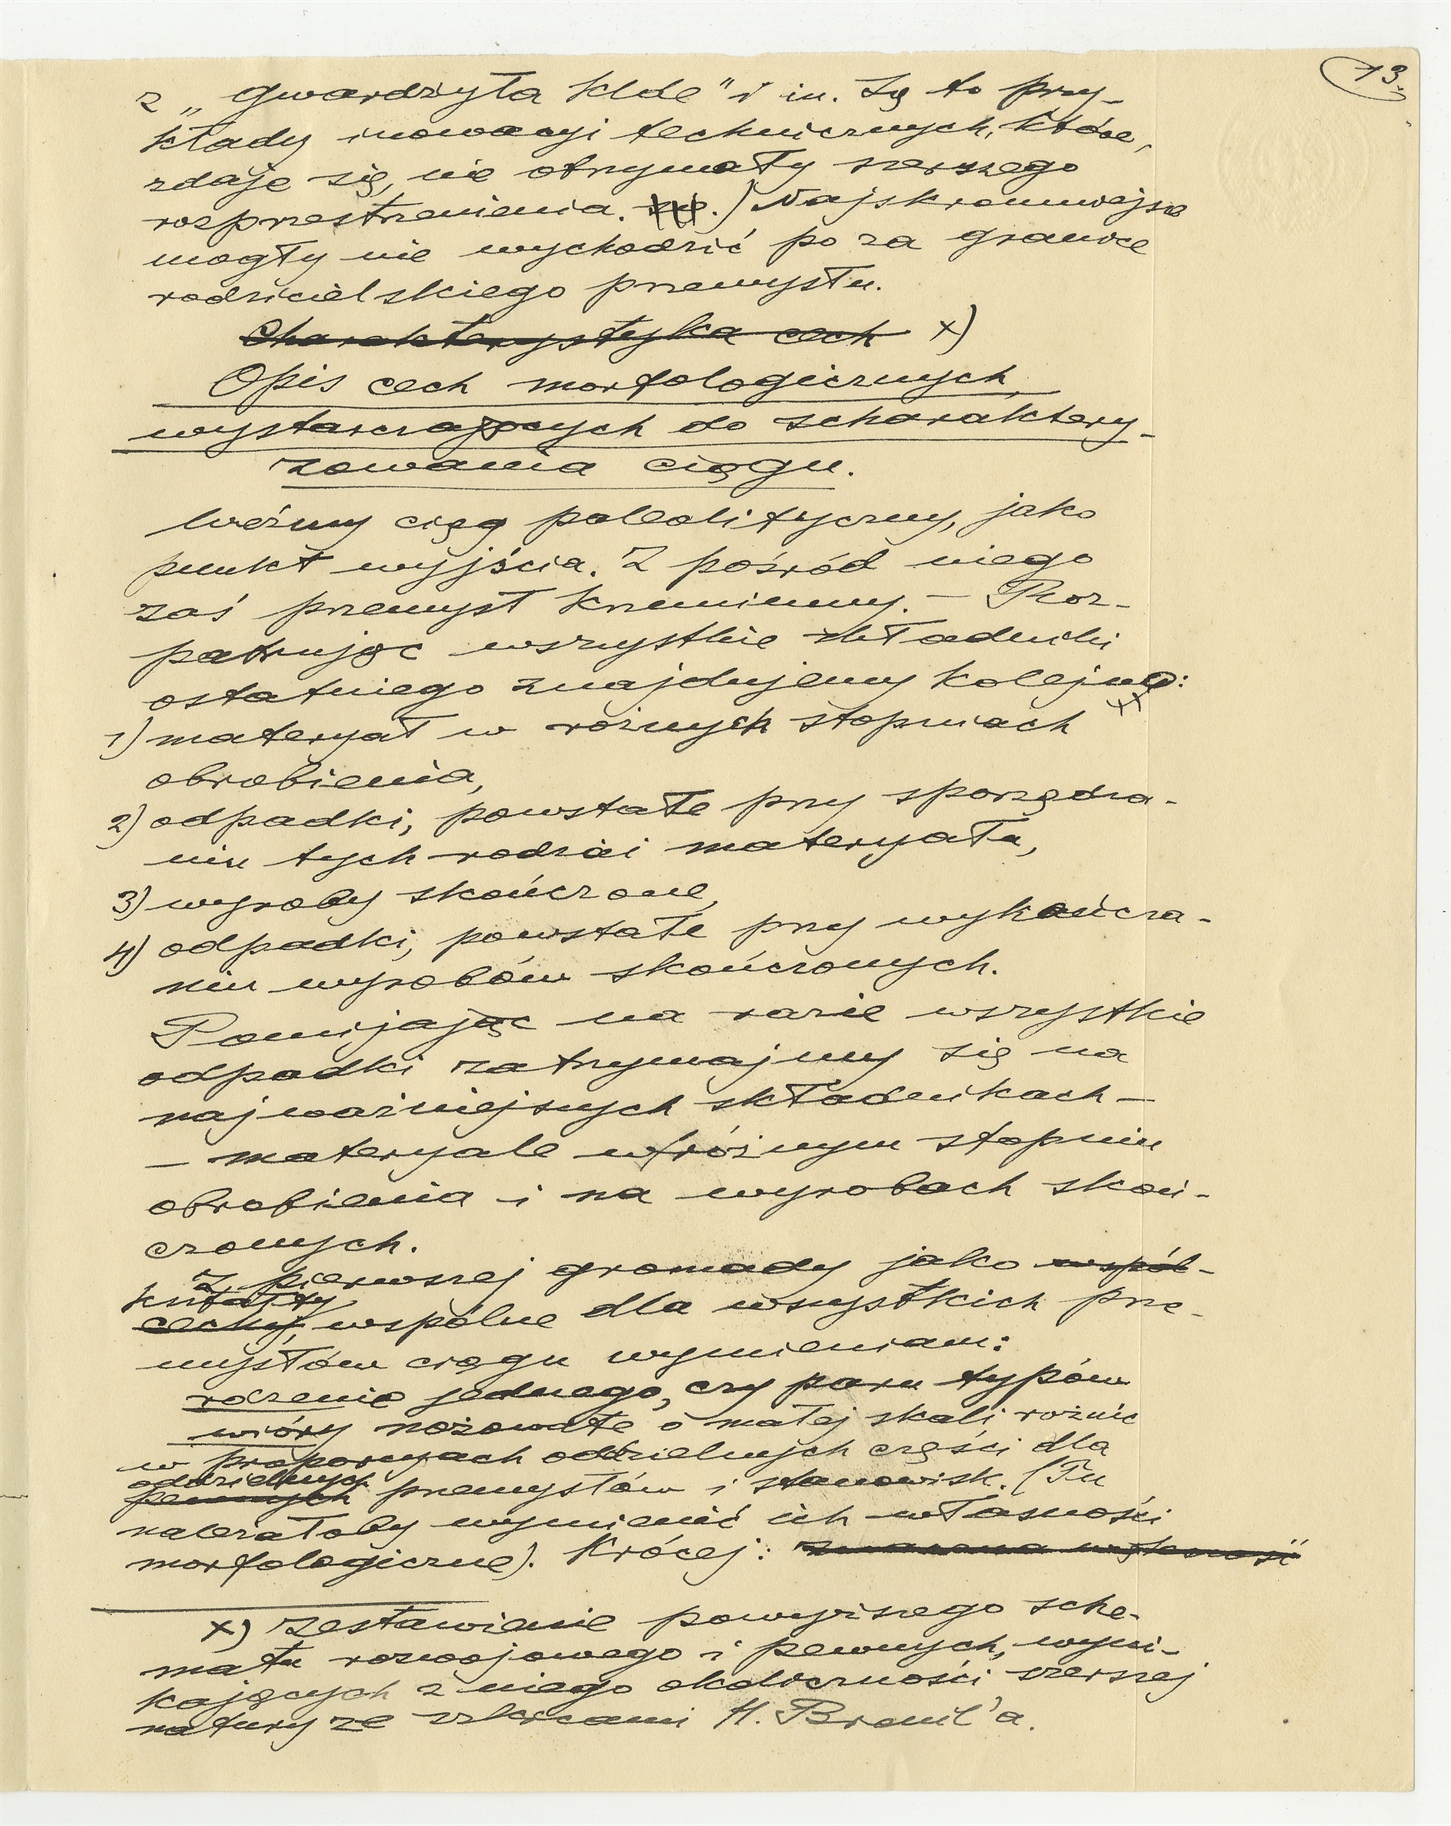 13.
z „Gwardzyła Klde” i in. Są to przy-
kłady inowacyi technicznych, które,
zdaje się, nie otrzymały szerszego
rozprzestrzenienia. Najskromniejsze
mogły nie wychodzić po za granice
rodzicielskiego przemysłu.
Charakterystyka cech x)
Opis cech morfologicznych,
wystarczających do scharaktery-
zowania ciągu.
Weźmy ciąg paleolityczny, jako
punkt wyjścia. Z pośród niego
zaś przemysł krzemienny. — Roz-
patrując wszystkie składniki
ostatniego znajdujemy kolejno:
1) materyał w rożnych stopniach
obrobienia,
2) odpadki, powstałe przy sporządza-
niu tych rodzai materyału,
3) wyroby skończone,
4) odpadki, powstałe przy wykańcza-
niu wyrobów skończonych.
Pomijając na razie wszystkie
odpadki zatrzymajmy się na
najważniejszych składnikach —
— materyale w różnym stopniu
obrobienia i na wyrobach skoń-
czonych.
Z pierwszej gromady jako wspól-
kształty
cechy, wspólne dla wszystkich prze-
mysłów ciągu wymieniam:
rdzenie jednego, czy paru typów
wióry nożowate o małej skali rożnic
w proporcyach oddzielnych części dla
oddzielnych
pewnych przemysłów i stanowisk. (Tu
należałoby wymienić ich własności
morfologiczne). Krócej:
x) zestawienie powyższego sche-
matu rozwojowego i pewnych, wyni-
kających z niego okoliczności szerszej
natury ze szkicami H. Breuil'a.